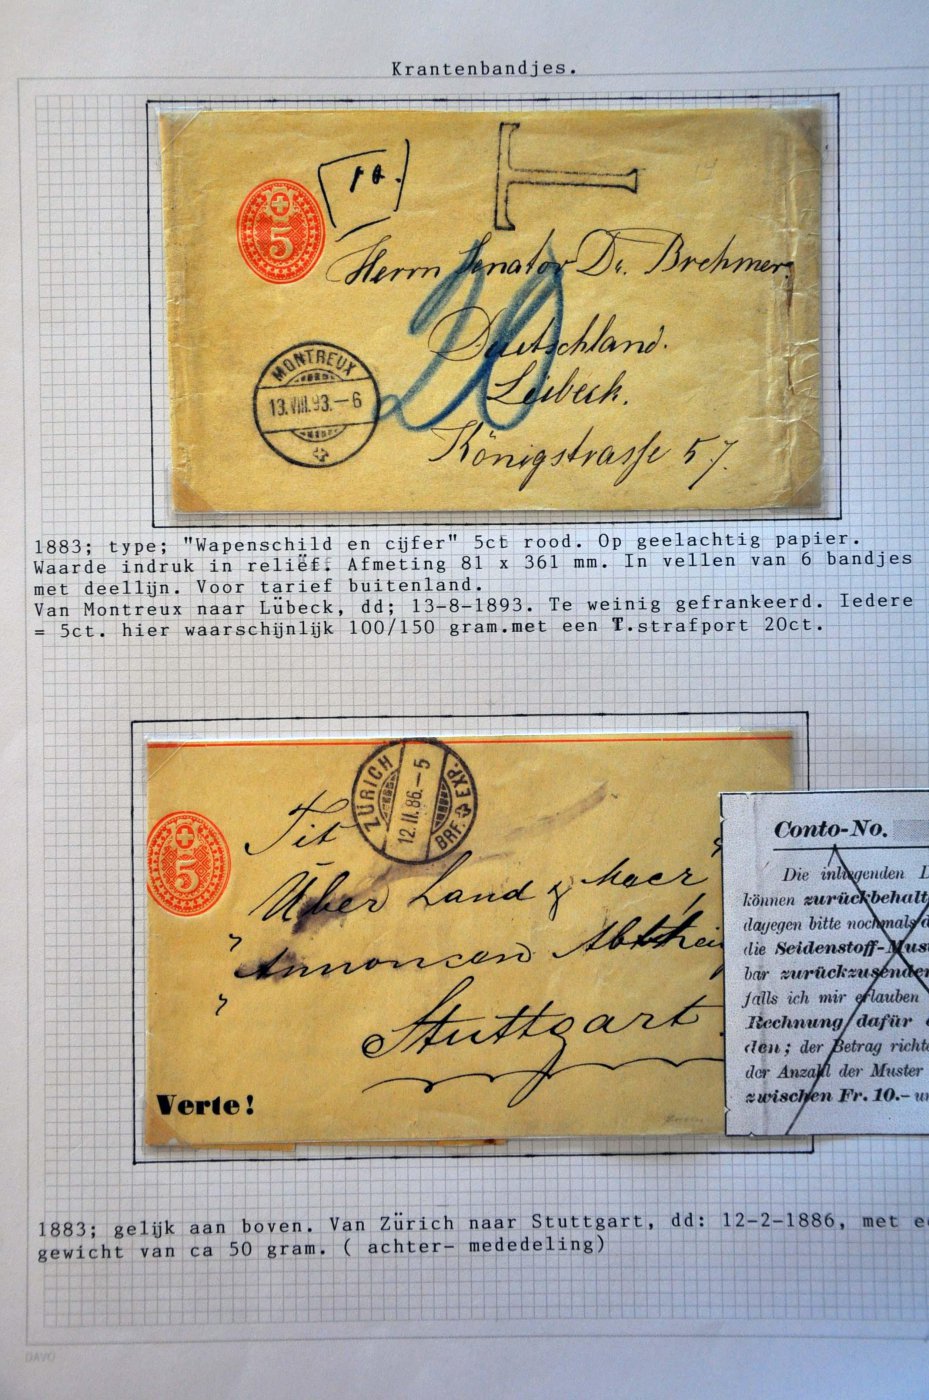 Krantenbandjes.
5
10.
T
Herrn Senator Dr. Brehmer.
20
Deutschland.
Lübeck.
Königstrasse 57.
MONTREUX
13.VIII.93.-6
1883; type; "Wapenschild en cijfer" 5ct rood. Op geelachtig papier.
Waarde indruk in reliëf. Afmeting 81 x 361 mm. In vellen van 6 bandjes
met deellijn. Voor tarief buitenland.
Van Montreux naar Lübeck, dd; 13-8-1893. Te weinig gefrankeerd. Iedere
= 5ct. hier waarschijnlijk 100/150 gram.met een T.strafport 20ct.
ZÜRICH
12.II.86.-5
BRF. EXP.
5
Tit
Über Land & Meer
Annoncen
Stuttgart.
Verte!
Conto-No.
Die inliegenden
können zurückbehalt
dagegen bitte nochmals
die Seidenstoff-Mus
bar zurückzusenden
falls ich mir erlauben
Rechnung dafür
den; der Betrag richt
der Anzahl der Muster
zwischen Fr. 10.- u
1883; gelijk aan boven. Van Zürich naar Stuttgart, dd: 12-2-1886, met e
gewicht van ca 50 gram. ( achter- mededeling)
DAVO